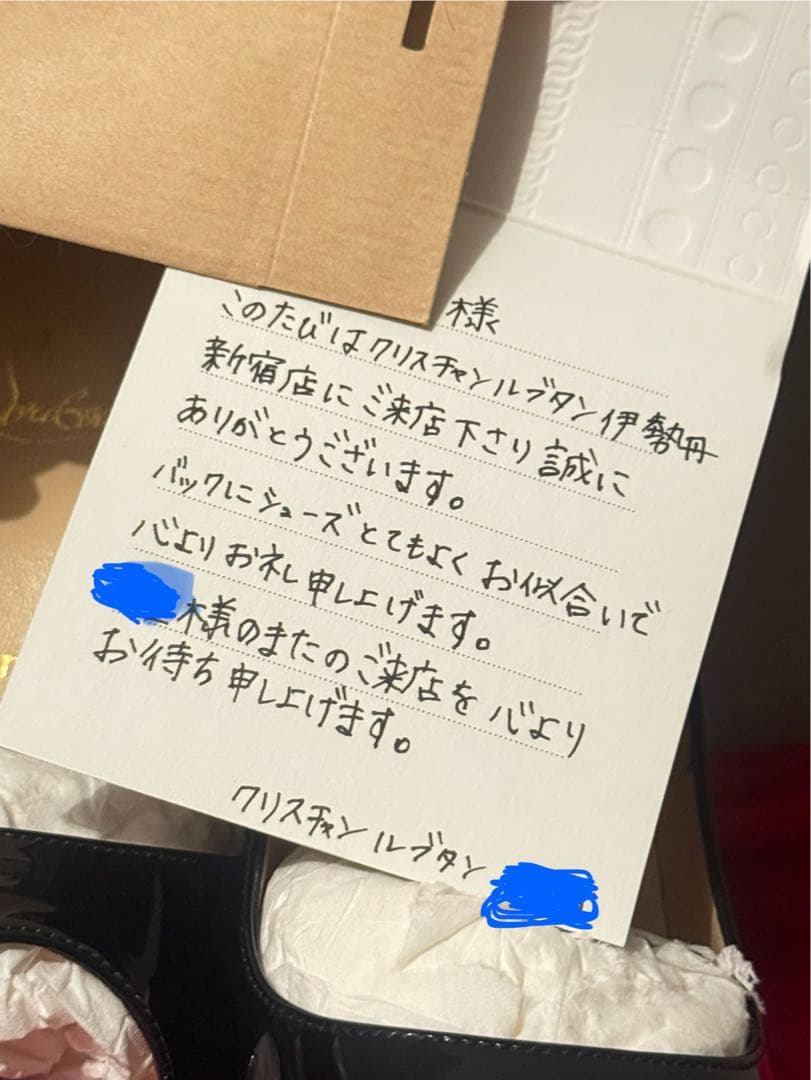 様
このたびはクリスチャンルブタン伊勢丹
新宿店にご来店下さり誠に
ありがとうございます。
バックにシューズとてもよくお似合いで
心よりお礼申し上げます。
様のまたのご来店を心より
お待ち申し上げます。
クリスチャンルブタン